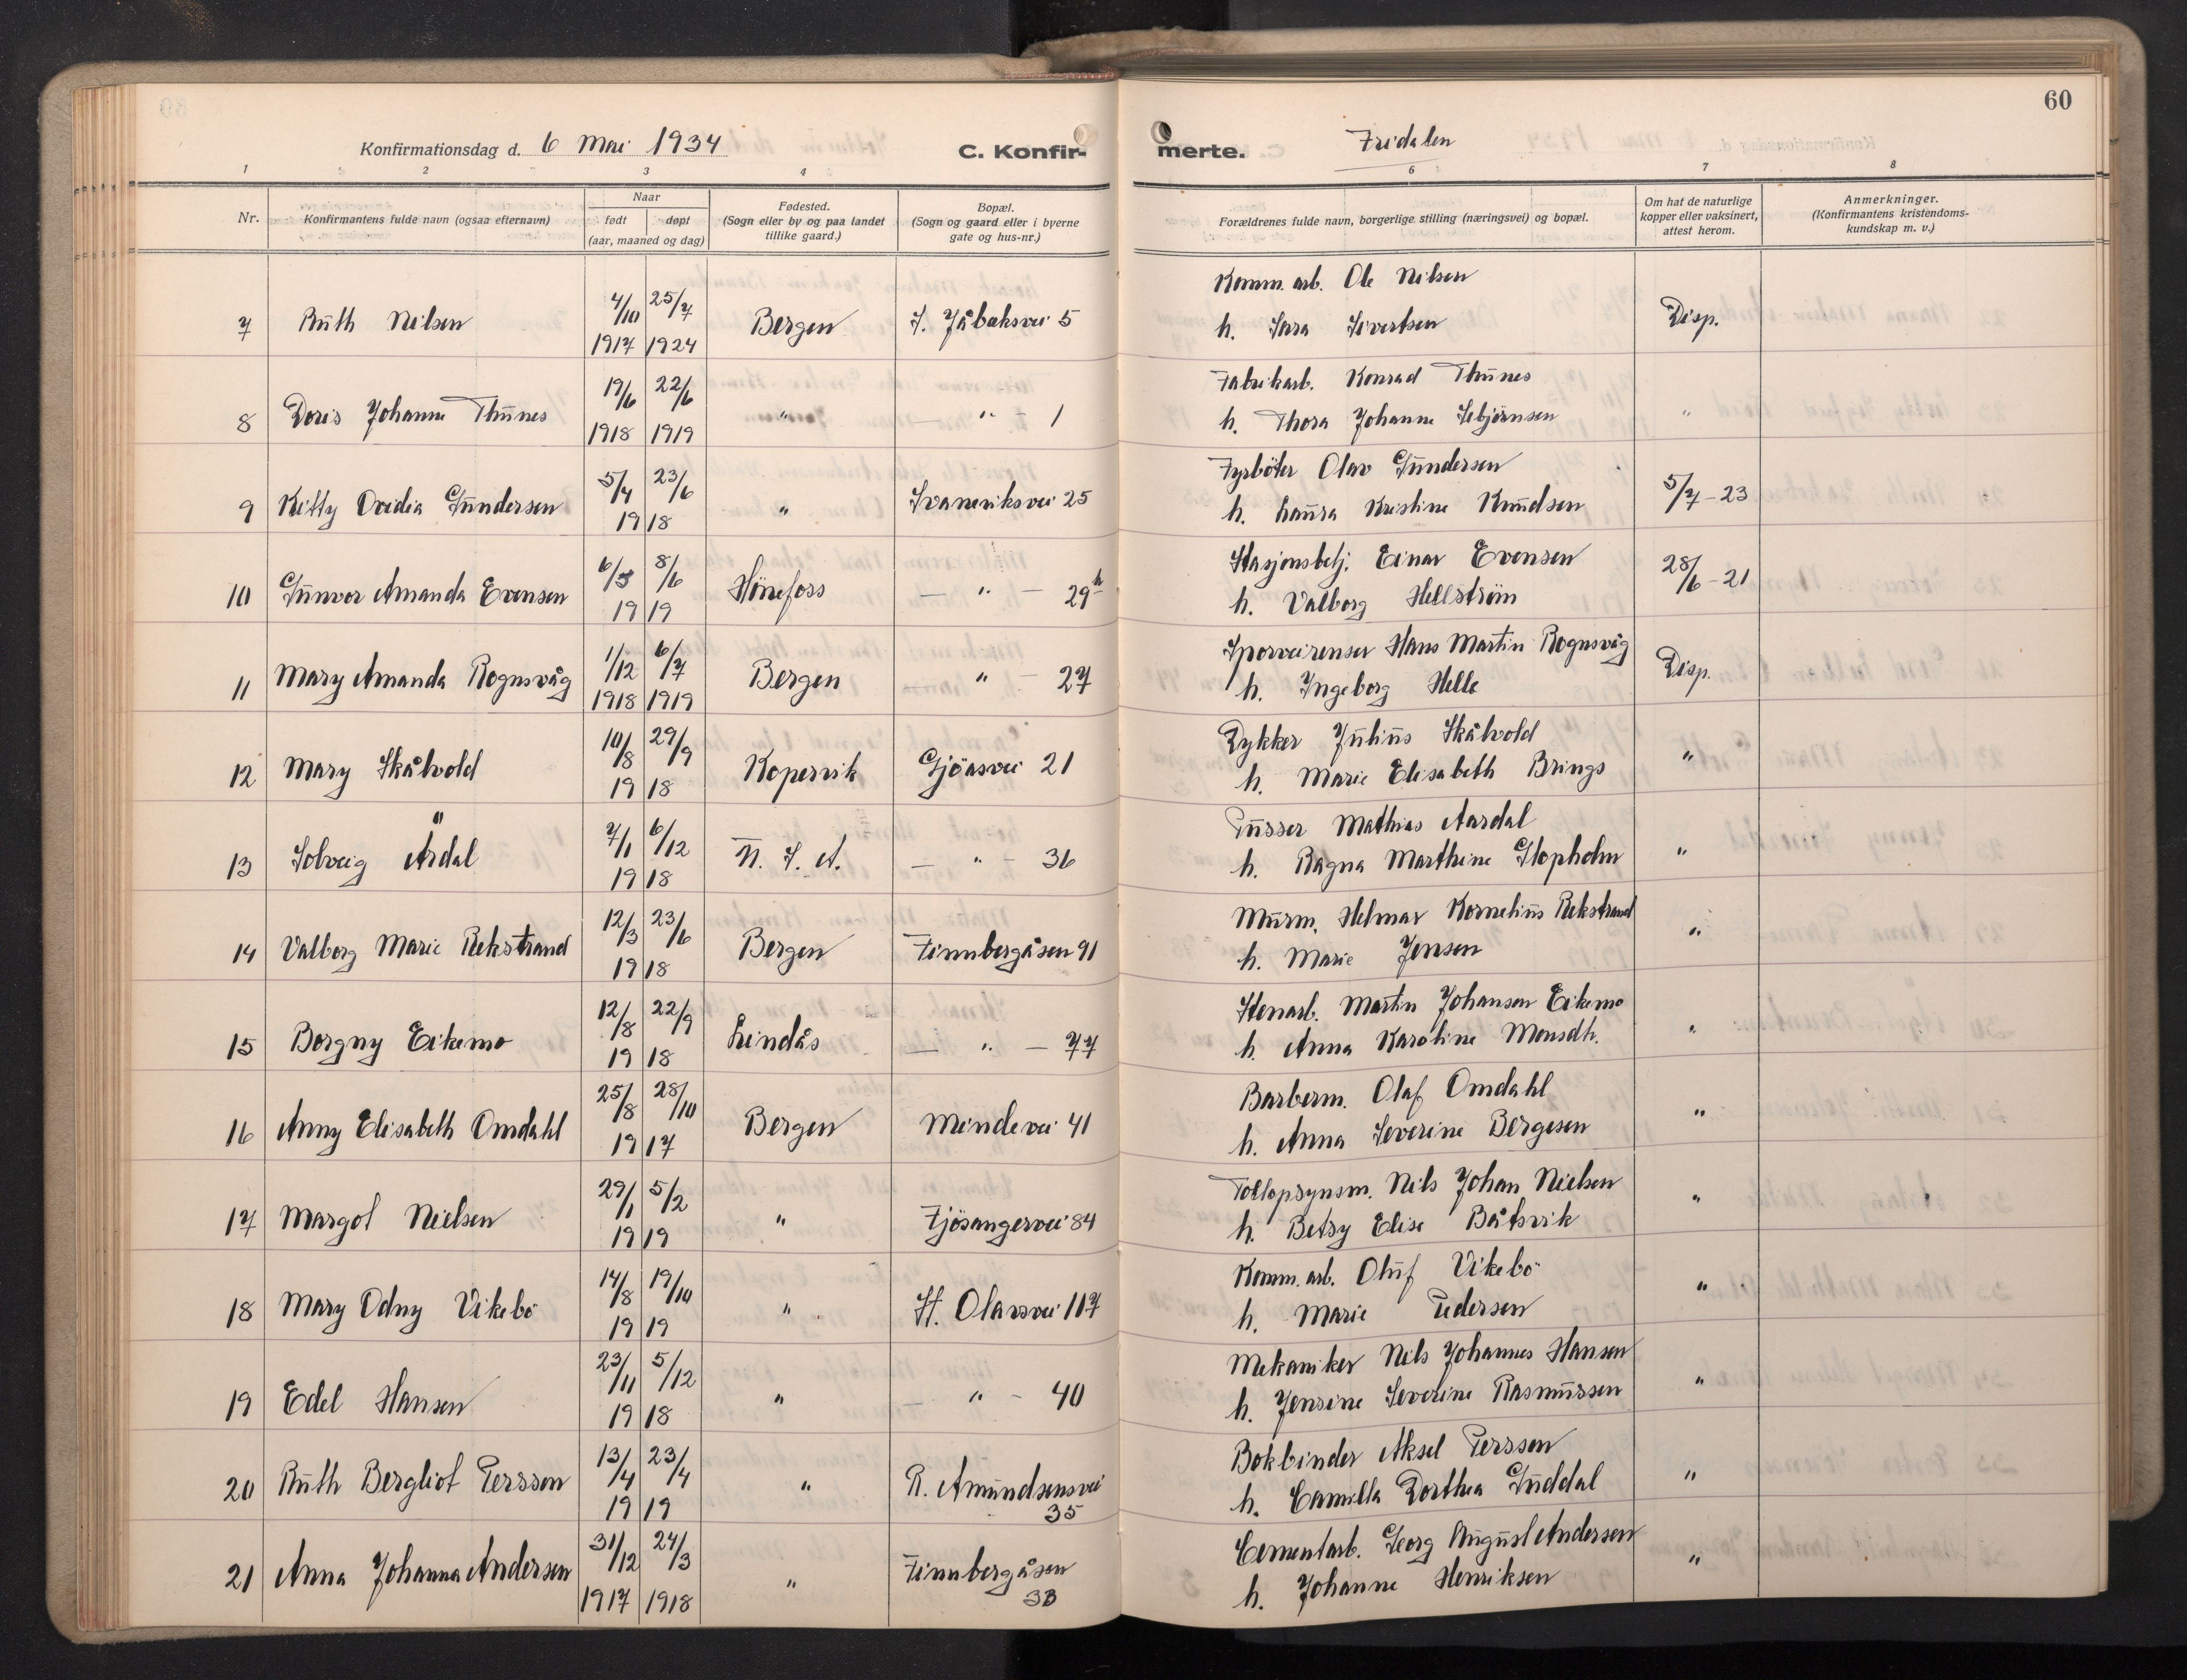 60
Konfirmationsdag d. 6 Mai 1934 C. Konfir- merte. Fridalen
1 2 3 4 5 6 7 8
Nr. Konfirmantens fulde navn (ogsaa efternavn) Naar født døpt (aar, maaned og dag) Fødested. (Sogn eller by og paa landet tillike gaard.) Bopæl. (Sogn og gaard eller i byerne gate og hus-nr.) Forældrenes fulde navn, borgerlige stilling (næringsvei) og bopæl. Om hat de naturlige kopper eller vaksinert, attest herom. Anmerkninger. (Konfirmantens kristendoms- kundskap m. v.)
Komm. arb. Ole Nilsen
7 Ruth Nilsen 4/10 1917 25/7 1924 Bergen J. Jåbaksvei 5 Disp.
h. Sara Sivertsen
Fabrikarb. Konrad Thunes
8 Doris Johanne Thunes 19/6 1918 22/6 1919 " — " 1 "
h. Thora Johanne Sebjørnsen
Fyrböter Olav Gundersen
9 Kitty Ovidia Gundersen 5/4 23/6 1918 " Svaneviksvei 25 5/7-23
h. Laura Kristine Knudsen
Stasjonsbetj. Einar Evensen
10 Gunvor Amanda Evensen 6/3 8/6 1919 Hönefoss — " — 29 28/6-21
h. Valborg Hellström
Sporveirenser Hans Martin Rognsvåg
11 Mary Amanda Rognsvåg 1/12 1918 6/7 1919 Bergen " — 27 Disp.
h. Ingeborg Helle
Dykker Julius Skålvold
12 Mary Skålvold 10/8 29/9 1918 Kopervik Gjöasvei 21 "
h. Marie Elisabeth Brings
Pusser Mathias Aardal
13 Solveig Årdal 7/1 6/12 1918 U. S. A. — " — 36 "
h. Ragna Marthine Glopholm
Murm. Helmar Kornelius Rekstrand
14 Valborg Marie Rekstrand 12/3 23/6 1918 Bergen Finnbergåsen 91 "
h. Marie Jensen
Stenarb. Martin Johansen Eikemo
15 Borgny Eikemo 12/8 22/9 1918 Lindås — " — 77 "
h. Anna Karoline Monsdh.
Barberm. Olaf Omdahl
16 Anny Elisabeth Omdahl 25/8 28/10 1917 Bergen Mindevei 41 "
h. Anna Severine Bergesen
Tollopsynsm. Nils Johan Nielsen
17 Margot Nielsen 29/1 5/2 1919 " Fjösangervei 84 "
h. Betsy Elise Båtsvik
Komm. arb. Oluf Vikebö
18 Mary Odny Vikebö 14/8 19/10 1919 " St. Olavsvei 117 "
h. Marie Pedersen
Mekaniker Nils Johannes Hansen
19 Edel Hansen 23/11 5/12 1918 " — " — 40 "
h. Jensine Severine Rasmussen
Bokbinder Aksel Persson
20 Ruth Bergliot Persson 13/4 23/4 1919 " R. Amundsensvei 35 "
h. Camilla Dorthea Guddal
Cementarb. Georg August Andersen
21 Anna Johanna Andersen 31/12 1917 24/3 1918 " Finnbergåsen 33 "
h. Johanne Henriksen